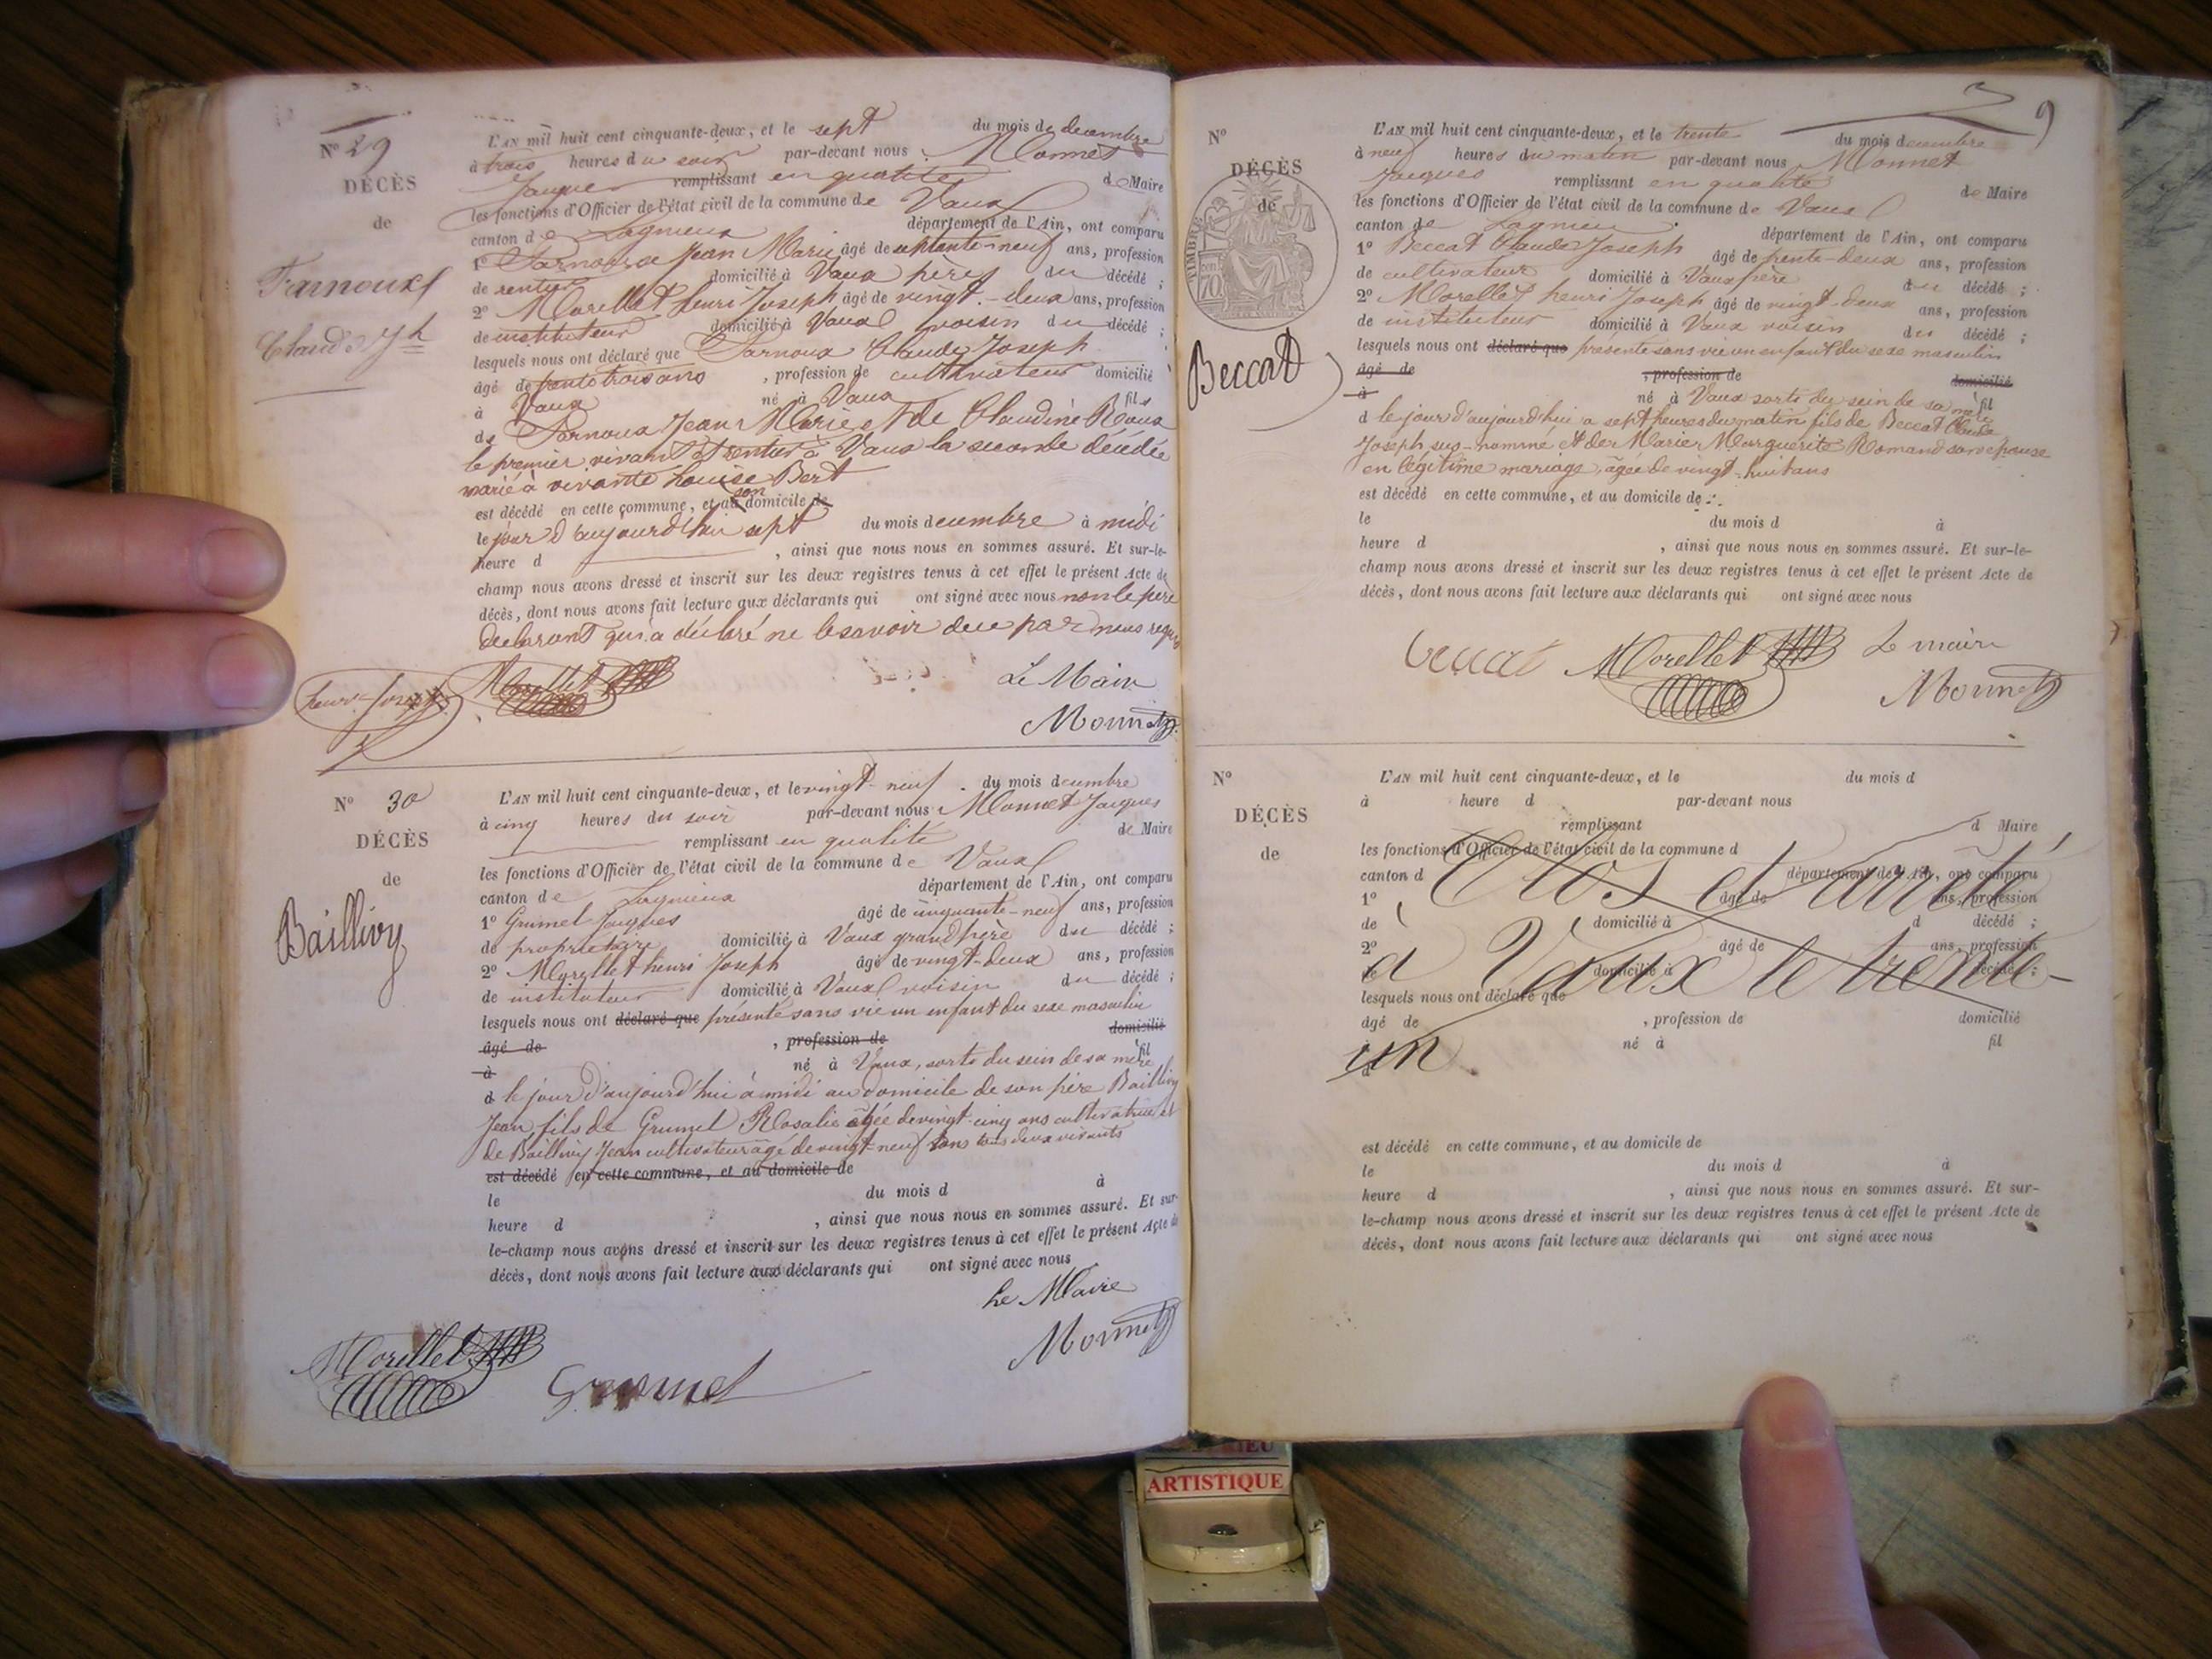 Nº 29
DÉCÈS
de
Farnoux
Claude Jh
L'AN mil huit cent cinquante-deux, et le sept du mois de decembre
à trois heures du soir par-devant nous Monnet
Jacques remplissant en qualité de Maire
les fonctions d'Officier de l'état civil de la commune de Vaux
canton de Lagnieux département de l'Ain, ont comparu
1º Farnoux Jean Marie âgé de septante-neuf ans, profession
de rentier domicilié à Vaux père du décédé ;
2º Morellet henri Joseph âgé de vingt-deux ans, profession
de instituteur domicilié à Vaux voisin du décédé ;
lesquels nous ont déclaré que Farnoux Claude Joseph
âgé de trente trois ans , profession de cultivateur domicilié
à Vaux né à Vaux fils
de Farnoux Jean Marie et de Claudine Roux
le premier vivant et rentier à Vaux la seconde décédée
marié à vivante Louise Bert
est décédé en cette commune, et au son domicile de
le jour d'aujourd'hui sept du mois decembre à midi
heure d , ainsi que nous nous en sommes assuré. Et sur-le-
champ nous avons dressé et inscrit sur les deux registres tenus à cet effet le présent Acte de
décès, dont nous avons fait lecture aux déclarants qui ont signé avec nous non le père
declarant qui a déclaré ne le savoir de ce par nous requis
henri Joseph Morellet Le Maire
Monnet
Nº 30
DÉCÈS
de
Baillivy
L'AN mil huit cent cinquante-deux, et le vingt-neuf du mois decembre
à cinq heures du soir par-devant nous Monnet Jacques
remplissant en qualité de Maire
les fonctions d'Officier de l'état civil de la commune de Vaux
canton de Lagnieux département de l'Ain, ont comparu
1º Grumel Jacques âgé de cinquante-neuf ans, profession
de propriétaire domicilié à Vaux grand père du décédé ;
2º Morellet henri Joseph âgé de vingt-deux ans, profession
de instituteur domicilié à Vaux voisin du décédé ;
lesquels nous ont déclaré que présenté sans vie un enfant du sexe masculin
âgé de , profession de domicilié
à né à Vaux, sorti du sein de sa mère fil
d le jour d'aujourd'hui à midi au domicile de son père Baillivy
Jean fils de Grumel Rosalie âgée de vingt-cinq ans cultivatrice et
de Baillivy Jean cultivateur âgé de vingt-neuf ans tous deux vivants
est décédé en cette commune, et au domicile de
le du mois d à
heure d , ainsi que nous nous en sommes assuré. Et sur-
le-champ nous avons dressé et inscrit sur les deux registres tenus à cet effet le présent Acte de
décès, dont nous avons fait lecture aux déclarants qui ont signé avec nous
Le Maire
Monnet
Morellet Grumel
9
Nº
DÉCÈS
de
TIMBRE
70
Beccat
L'AN mil huit cent cinquante-deux, et le trente du mois decembre
à neuf heures du matin par-devant nous Monnet
Jacques remplissant en qualité de Maire
les fonctions d'Officier de l'état civil de la commune de Vaux
canton de Lagnieu département de l'Ain, ont comparu
1º Beccat Claude Joseph âgé de trente-deux ans, profession
de cultivateur domicilié à Vaux père du décédé ;
2º Morellet henri Joseph âgé de vingt-deux ans, profession
de instituteur domicilié à Vaux voisin du décédé ;
lesquels nous ont déclaré que presenté sans vie un enfant du sexe masculin
âgé de , profession de domicilié
à né à Vaux sorti du sein de sa mère fil
d le jour d'aujourd'hui a sept heures du matin fils de Beccat Claude
Joseph sus-nommé et de Marie Marguerite Romand son épouse
en légitime mariage, âgée de vingt-huit ans
est décédé en cette commune, et au domicile de
le du mois d à
heure d , ainsi que nous nous en sommes assuré. Et sur-le-
champ nous avons dressé et inscrit sur les deux registres tenus à cet effet le présent Acte de
décès, dont nous avons fait lecture aux déclarants qui ont signé avec nous
Beccat Morellet Le maire
Monnet
Nº
DÉCÈS
de
L'AN mil huit cent cinquante-deux, et le du mois d
à heure d par-devant nous
remplissant d Maire
les fonctions d'Officier de l'état civil de la commune d
canton d département de l'Ain, ont comparu
1º âgé de ans, profession
de domicilié à d décédé ;
2º âgé de ans, profession
de domicilié à décédé ;
lesquels nous ont déclaré que
âgé de , profession de domicilié
à né à fil
d
Clos et arrêté
à Vaux le trente-
un
est décédé en cette commune, et au domicile de
le du mois d à
heure d , ainsi que nous nous en sommes assuré. Et sur-
le-champ nous avons dressé et inscrit sur les deux registres tenus à cet effet le présent Acte de
décès, dont nous avons fait lecture aux déclarants qui ont signé avec nous
ARTISTIQUE